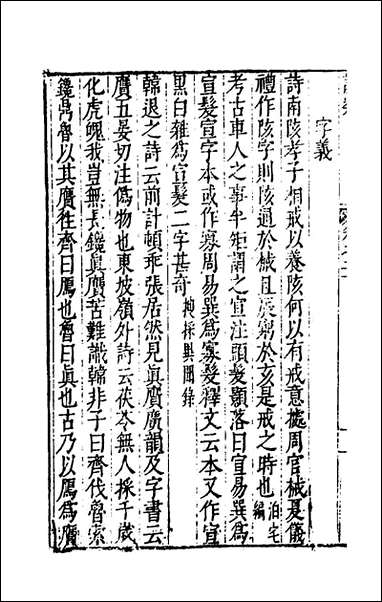 字義
詩南陔孝子相戒以養陔何以有戒意據周官械夏儀
禮作陔字則陔通於械且辰窮於亥是戒之時也 泊宅編
考古車人之事半矩謂之宣注頭髮顥落曰宣易巽爲
宣髮宣字本或作寡周易巽爲寡髮釋文云本又作宣
黑白雜爲宣髮二字甚奇 捜採異聞錄
韓退之詩云前計頓乖張居然見眞贋廣韻及字書云
贋五晏切注僞物也東坡嶺外詩云茯苓無人採千歲
化虎魄我豈無長鑱眞贋苦難識韓非子曰齊伐魯索
鑱鼎魯以其贋往齊曰鴈也魯曰眞也古乃以鴈爲贋